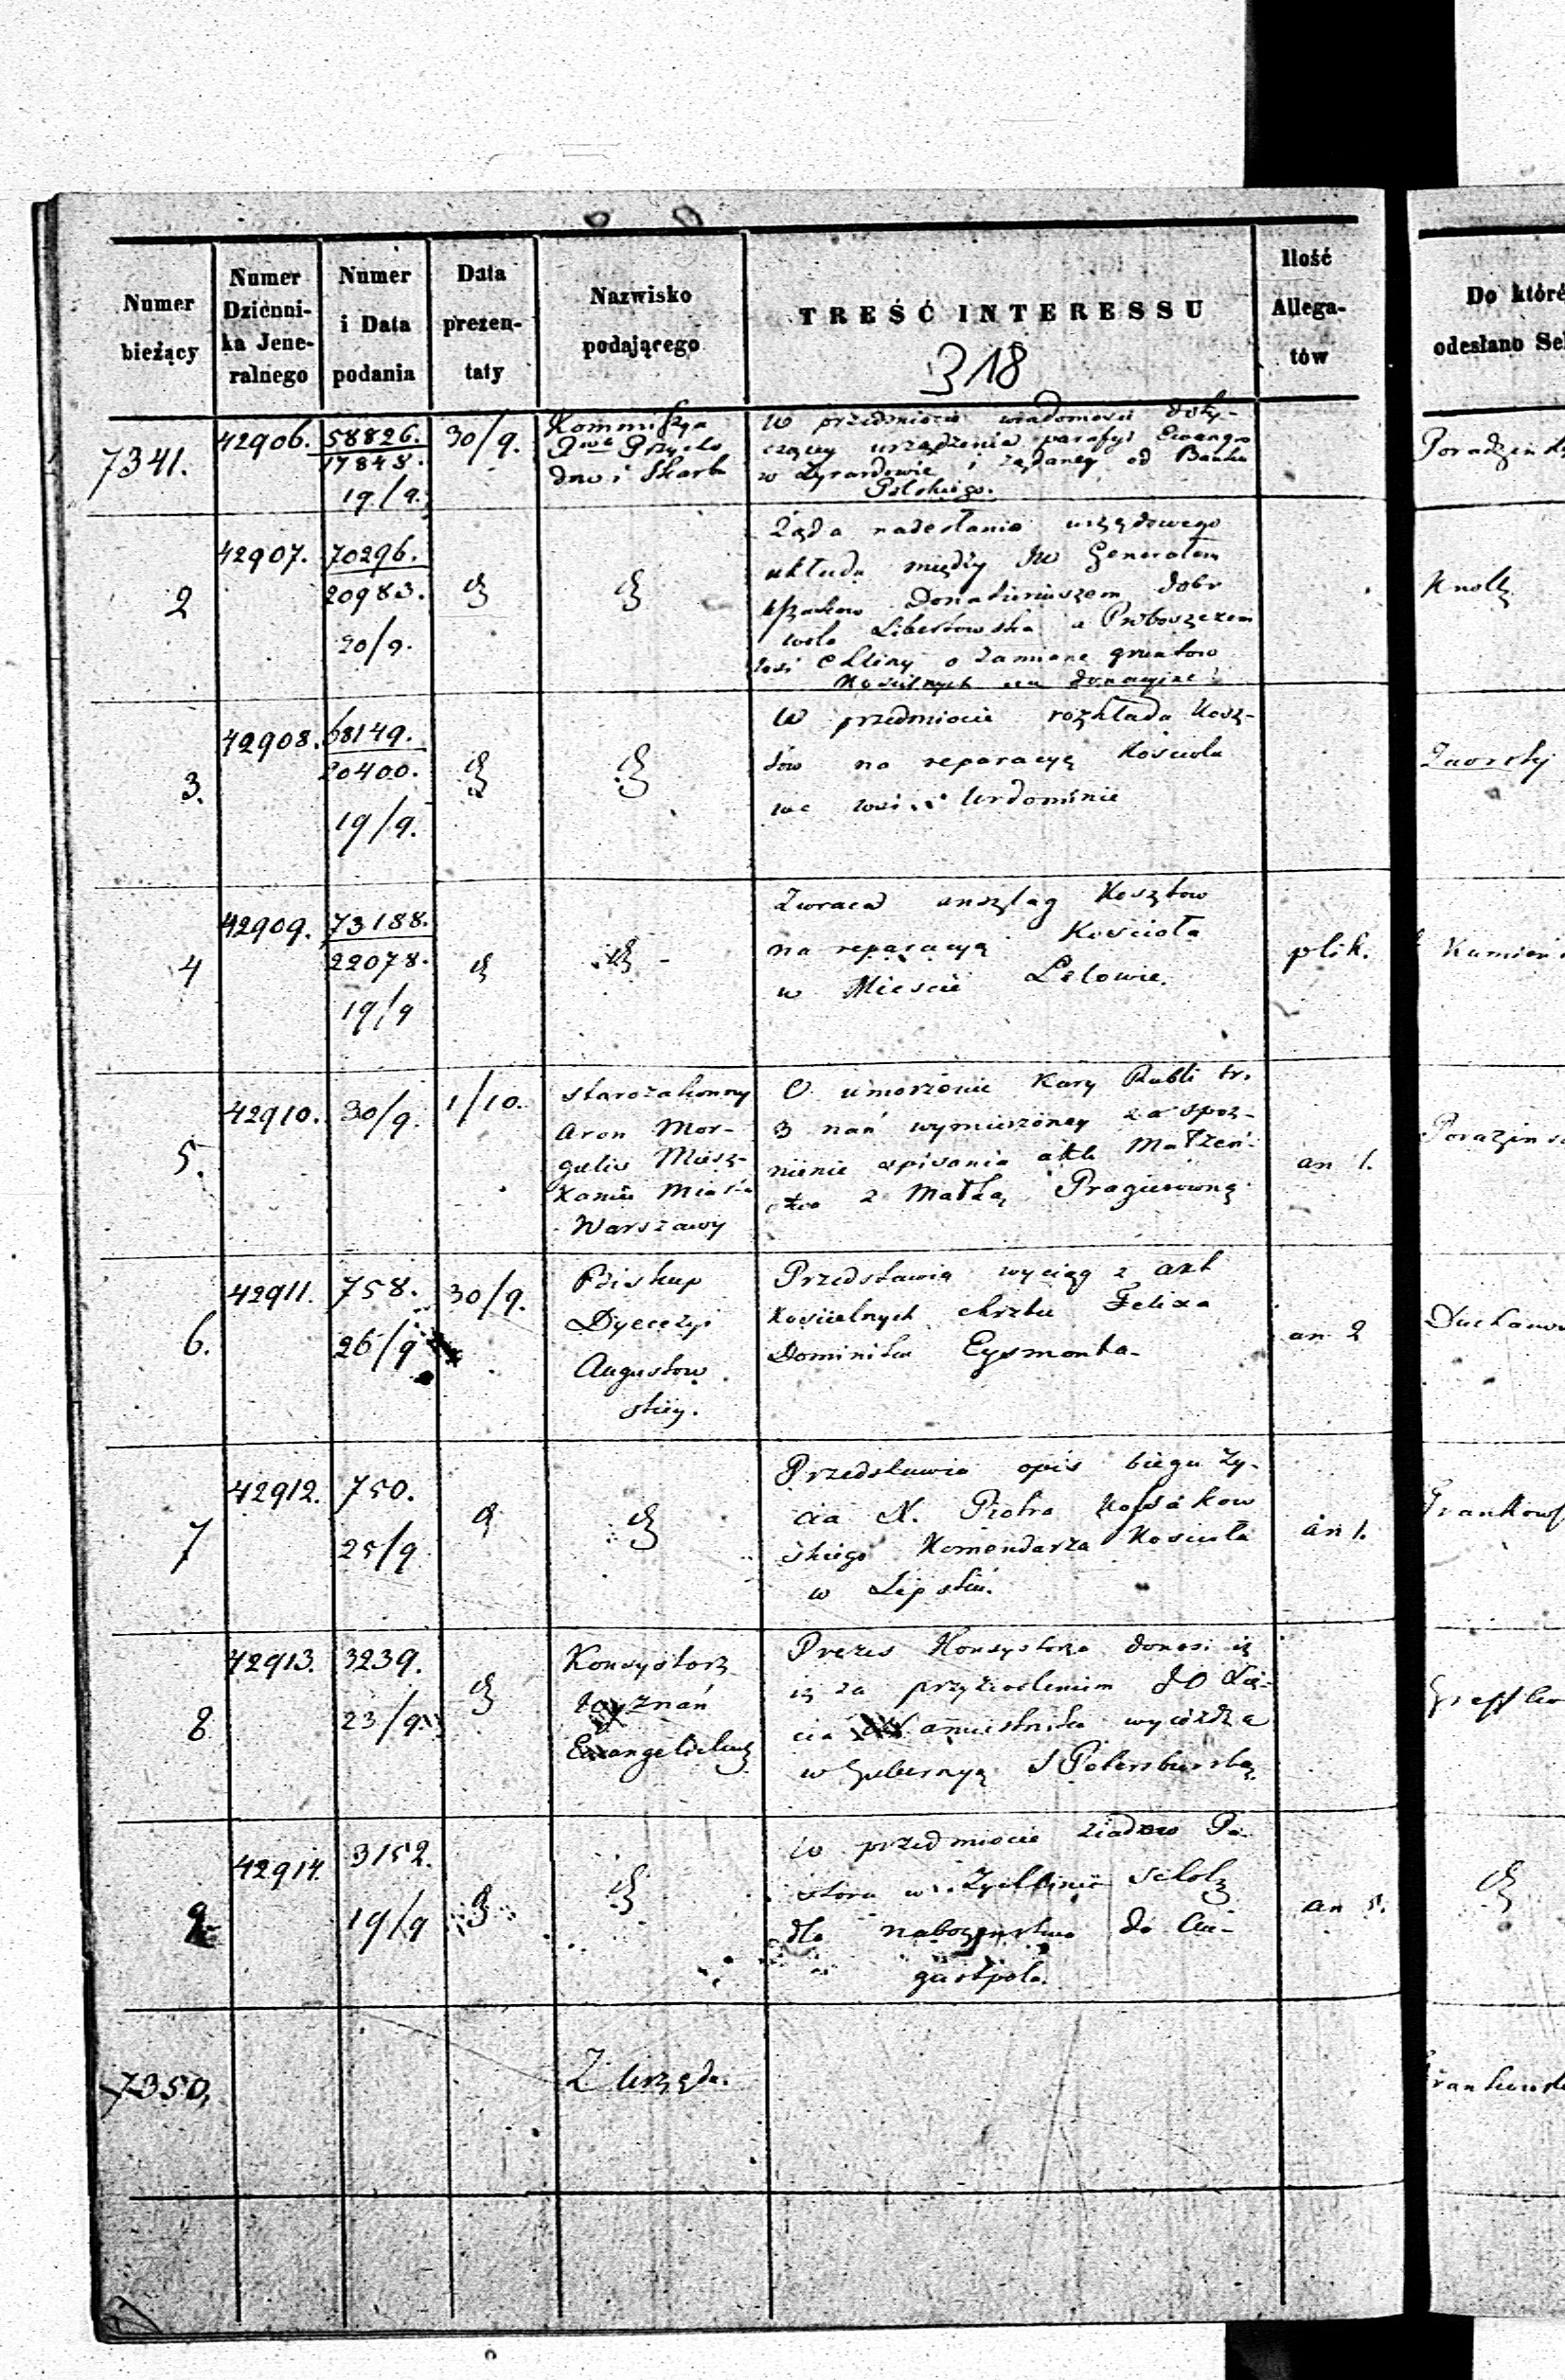 Numer bieżący
Numer Dzienni- ka Jene- ralnego
Numer i Data podania
Data prezen- taty
Nazwisko podającego
TREŚĆ INTERESSU
Ilość Allega- tów
Do któré
odesłano Se
318
7341.
42906.
58826.
17848.
19/9.
30/9.
Kommissya
Przycho
dów i Skarbu
W przedmiocie wiadomości doty-
czącey urządzenia parafyi Ewang
w Żyrardowie i żądaney od Banku
Polskiego.
2
42907.
70296.
20983.
20/9.
Żąda nadesłania urzędowego
układu między JW Generałem
Donataryuszem dobr
Wola Libertowska a Proboszczem
wsi Chliny o zamianę gruntow
Kościelnych na donacyjne
Knoll
3.
42908.
68149.
20400.
19/9.
W przedmiocie rozkładu kosz-
tów na reparacyą Kościoła
we wsi Urdominie
4
42909.
73188.
22078.
19/9
Zwraca anszlag Kosztow
na reparacyą Kościoła
w Mieście Lelowie.
plik.
5.
42910.
30/9.
1/10.
Starozakonny
Aron Mor-
gulis Miesz-
kaniec Miasta
Warszawy
O umorzenie Kary Rubli sr.
3 nań wymierzoney za spoz-
nienie spisania akt Małżeń-
stwa z Małką Pragierowną
an 1.
6.
42911.
758.
26/9
30/9.
Biskup
Dyecezyi
Augustow
skiey.
Przedstawia wyciąg z akt
Kościelnych chrztu Felixa
Dominika Eysmonta.
an 2
7
42912.
750.
25/9
Przedstawia opis biegu ży-
cia X. Piotra Kossakow
skiego Komendarza Kościoła
w Lipsku.
an 1.
8
42913.
3239.
23/9.
Konsystorz
Wyznań
Ewangelickich
Prezes Konsystorza donosi iż
iż za przyzwoleniem JO Xię-
cia Namiestnika wyjeżdża
w Gubernyą S Petersburską
9
42914.
3152.
19/9
W przedmiocie ziadow Pa
stora w Żychlinie Scholz
dla nabożeństwa do Au-
gustpola.
7350.
Z Urzędu.